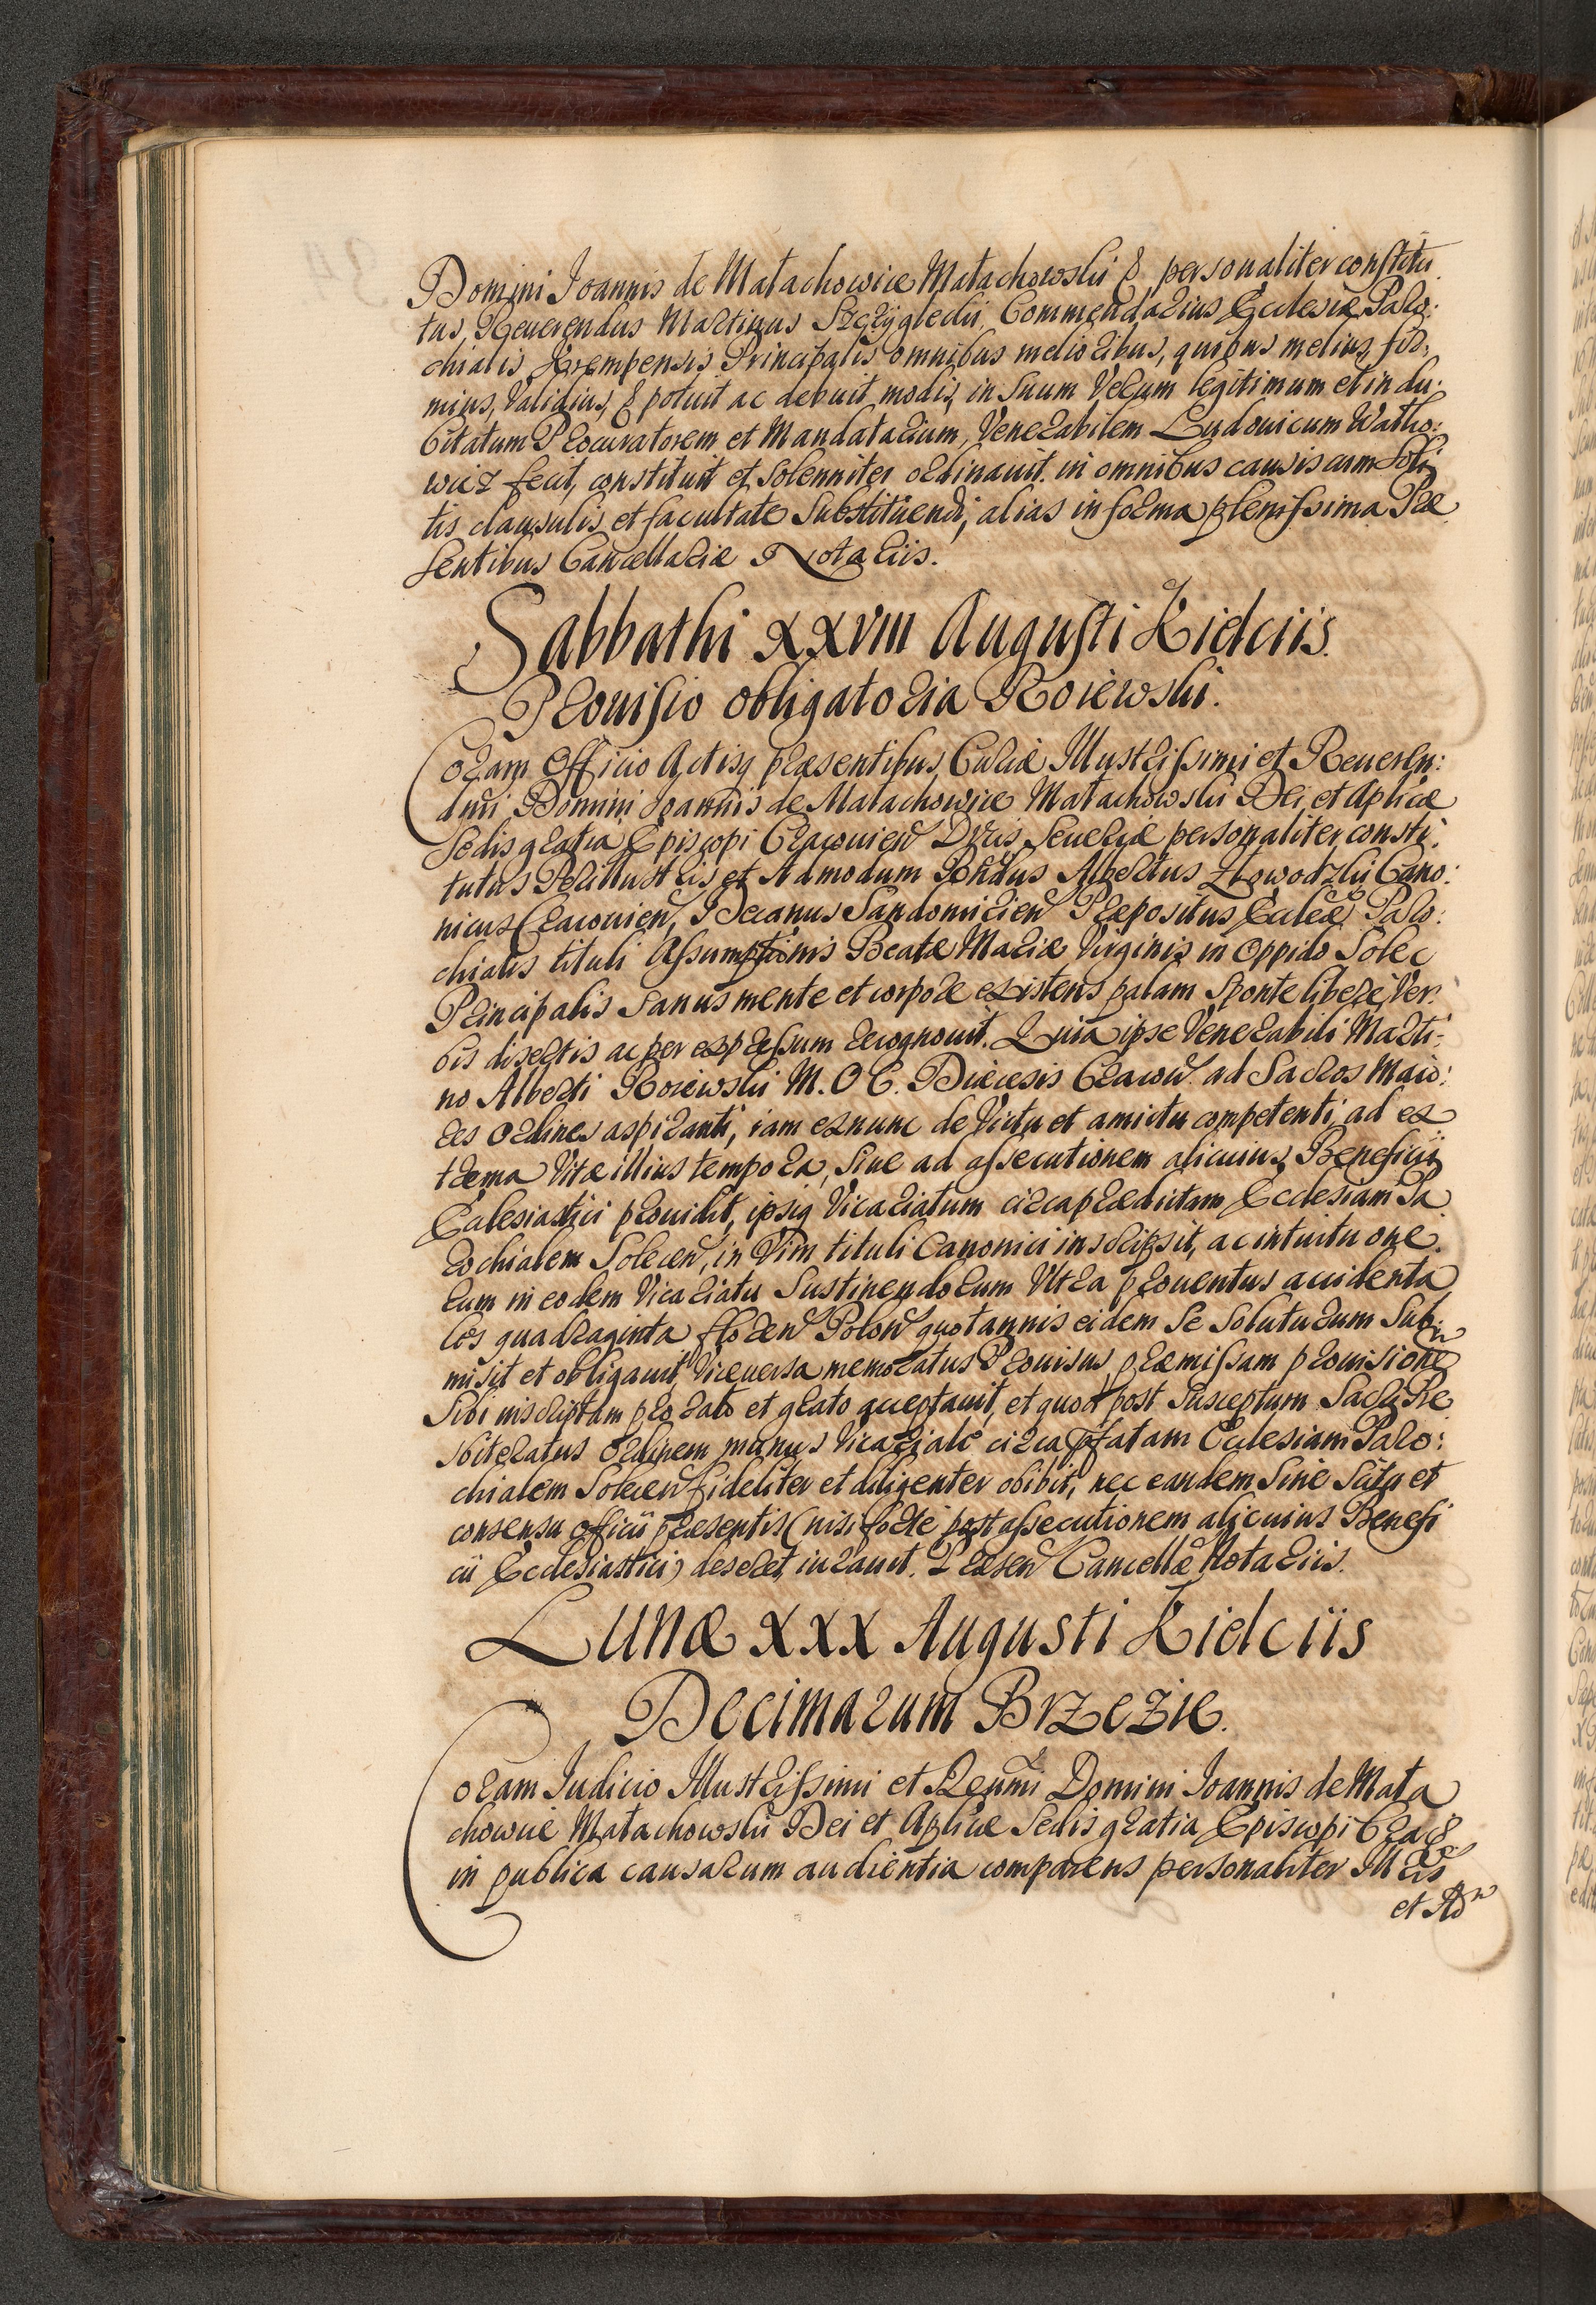 Domini Joannis de Małachowice Małachowski & personaliter constitu
tus, Reuerendus Martinus Szczygłecki, Commendarius Ecclesiæ Paro:
chialis Principalis omnibus melioribus, quibus melius, fir:
mius, Validius, & potuit ac debuit modis, in Suum Verum legitimum et indu:
bitatum Procuratorem et Mandatarium, Venerabilem Ludouicum Watho:
wicz fecit, constituit et Solenniter ordinauit. in omnibus causis cum Soli
tis clausulis, et facultate Substituendi, alias in forma plenissima Præ
sentibus Cancellariæ Notariis.
Sabbathi XXVIII Augusti Kielciis.
Prouisio obligatoria Roiewski.
Coram Officio Actisq præsentibus Curiæ Illustrissimi et Reueren:
dmi Domini Joannis de Małachowice Małachowski Dei, et Aplicæ
Sedis gratia Episcopi Cracouien Ducis Seueriæ personaliter consti:
tutus Perillustris et Admodum Rndus Albertus Zkowodzki Cano:
nicus Cracouien, Decanus Sandomirien Præpositus Ecclæ Paro:
chialis tituli Assumptionis Beatæ Mariæ Virginis in Oppido Solec
Principalis Sanus mente et corpore existens palam Sponte liberé Ver:
bis disertis ac per expressum recognouit. Quia ipse Venerabili Marti:
no Alberti Roiewski M. O C. Diœcesis Cracou. ad Sacros Maio:
res Ordines aspiranti, iam ex nunc de Victu et amictu competenti, ad ex
trema Vitæ illius tempora, Siue ad assecutionem alicuius Beneficii
Eclesiastici prouidit, ipsiq Vicariatum circa prædictam Ecclesiam Pa
rochialem Solecen, in Vim tituli Canonici inscripsit, ac intuitu one:
rum in eodem Vicariatu Sustinendorum Vltra prouentus accidenta
les quadraginta floren Polon quotannis eidem Se Soluturum Sub:
misit et obligauit, Viceuersa memoratus Prouisus, præmissam prouisione
Sibi inscriptam pro rato et grato acceptauit, et quod post Susceptum Sacri Pre
sbiteratus Ordinem munus Vicariale circa pfatam Eclesiam Paro:
chialem Solecen fideliter et diligenter obibit, nec eandem Sine Scitu et
consensu Officii præsentis (nisi forté post assecutionem alicuius Benefi
cii Ecclesiastici) deseret, iurauit. Præsen Cancellæ Notariis.
Lunæ XXX Augusti Kielciis
Decimarum Brzezie.
Coram Iudicio Illustrissimi et Reumi Domini Joannis de Mała
chowice Małachowski Dei et Aplicæ Sedis gratia Episcopi Crac &
in publica causarum audientia comparens personaliter Illris
et Ad